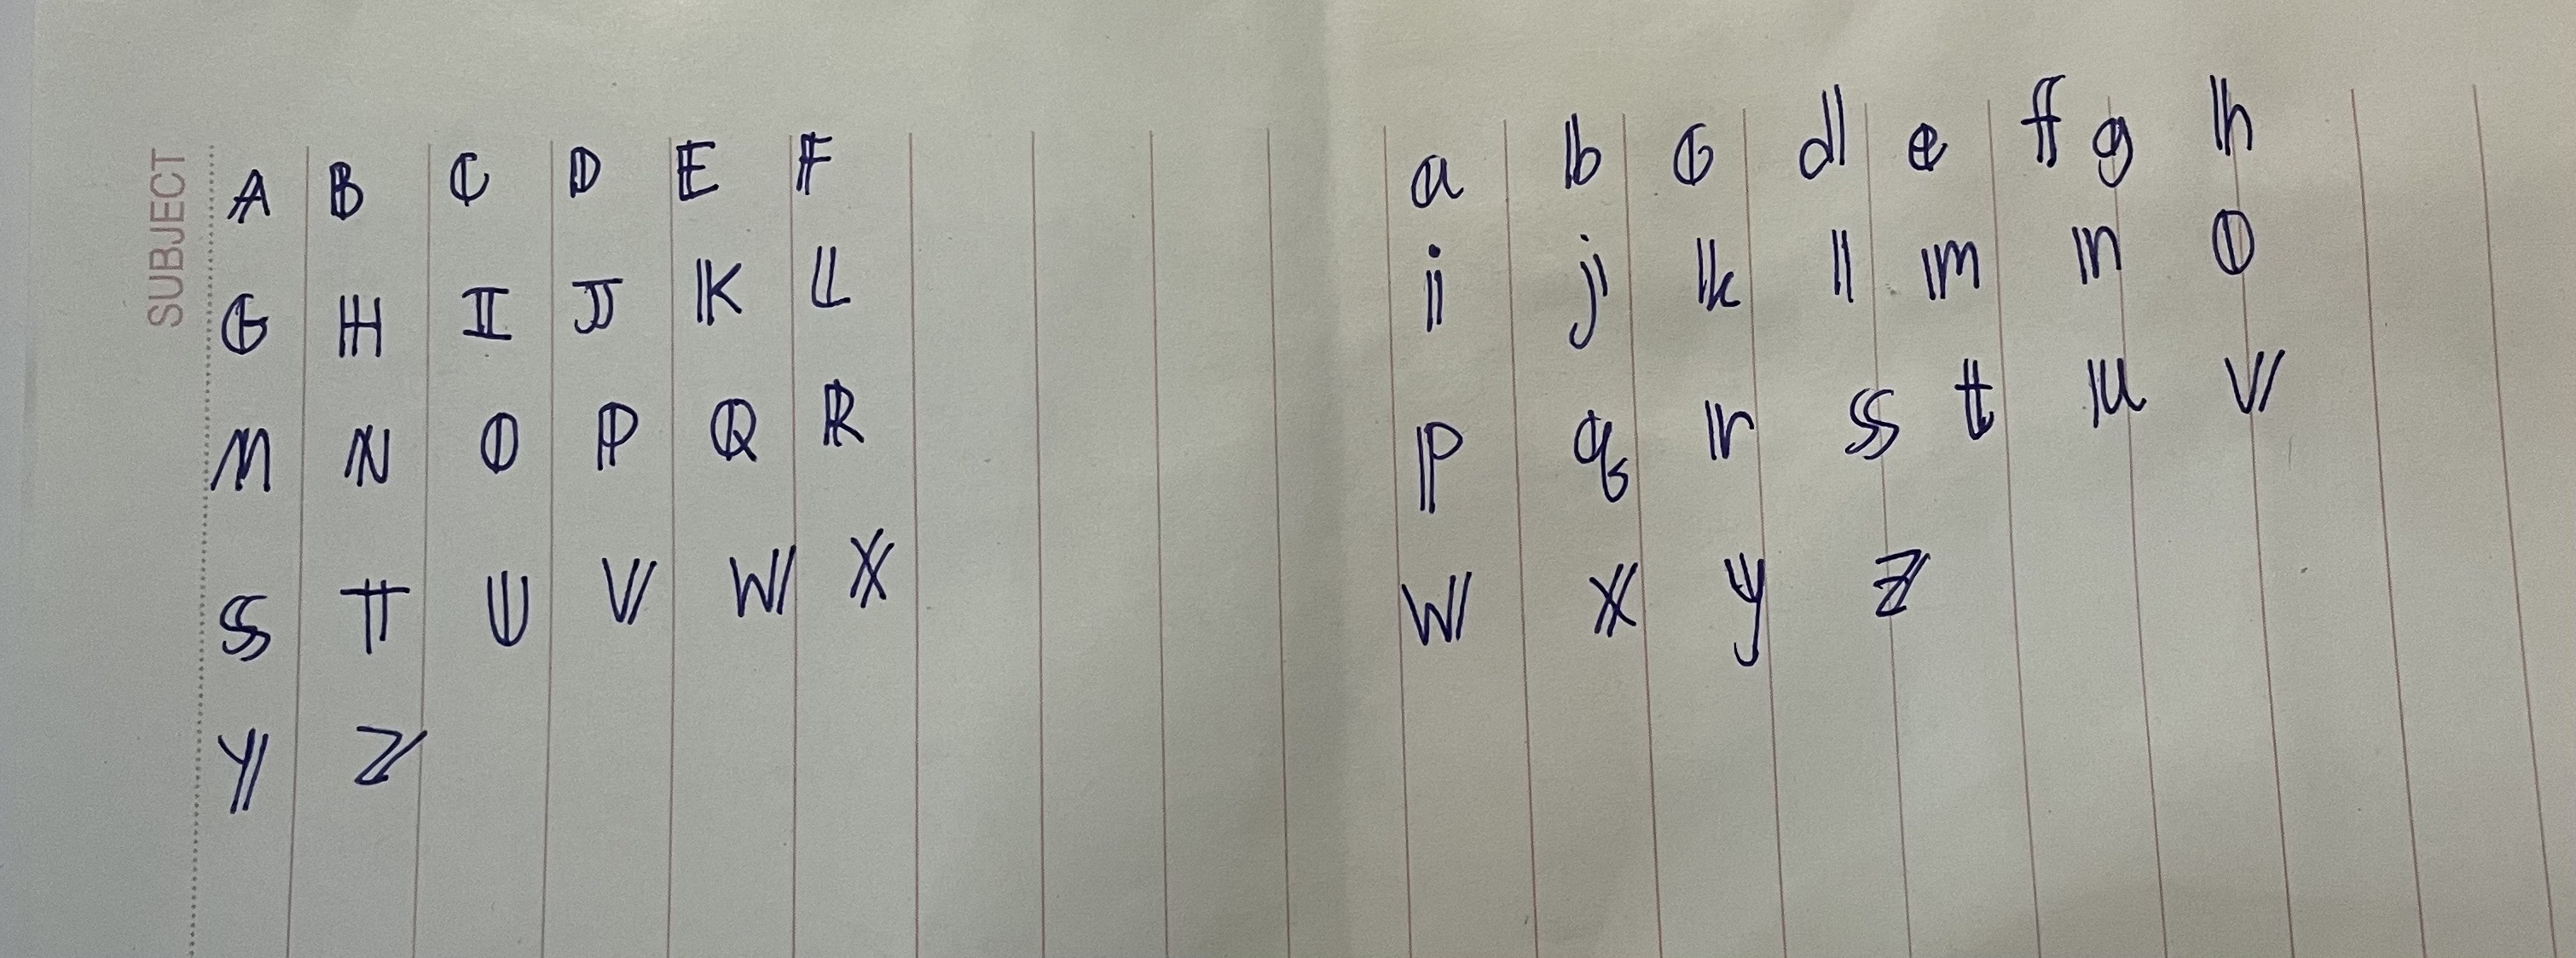 SUBJECT
A B C D E F
G H I J K L
M N O P Q R
S T U V W X
Y Z
a b c d e f g h
i j k l m n o
p q r s t u v
w x y z